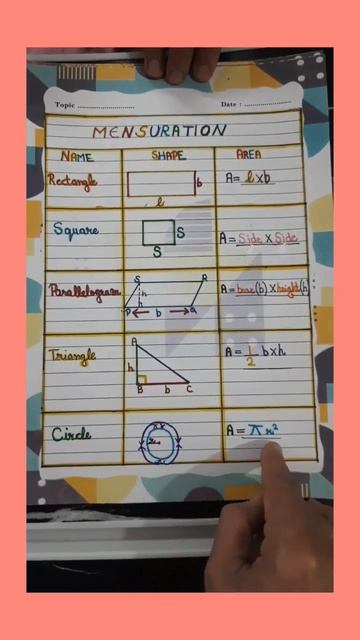 Topic ............................ Date : ........................
MENSURATION
NAME SHAPE AREA
Rectangle b l A = l x b
Square S S A = Side x Side
Parallelogram S R h h P b Q A = base(b) x height(h)
Triangle A h B b C A = 1/2 b x h
Circle A = π r²